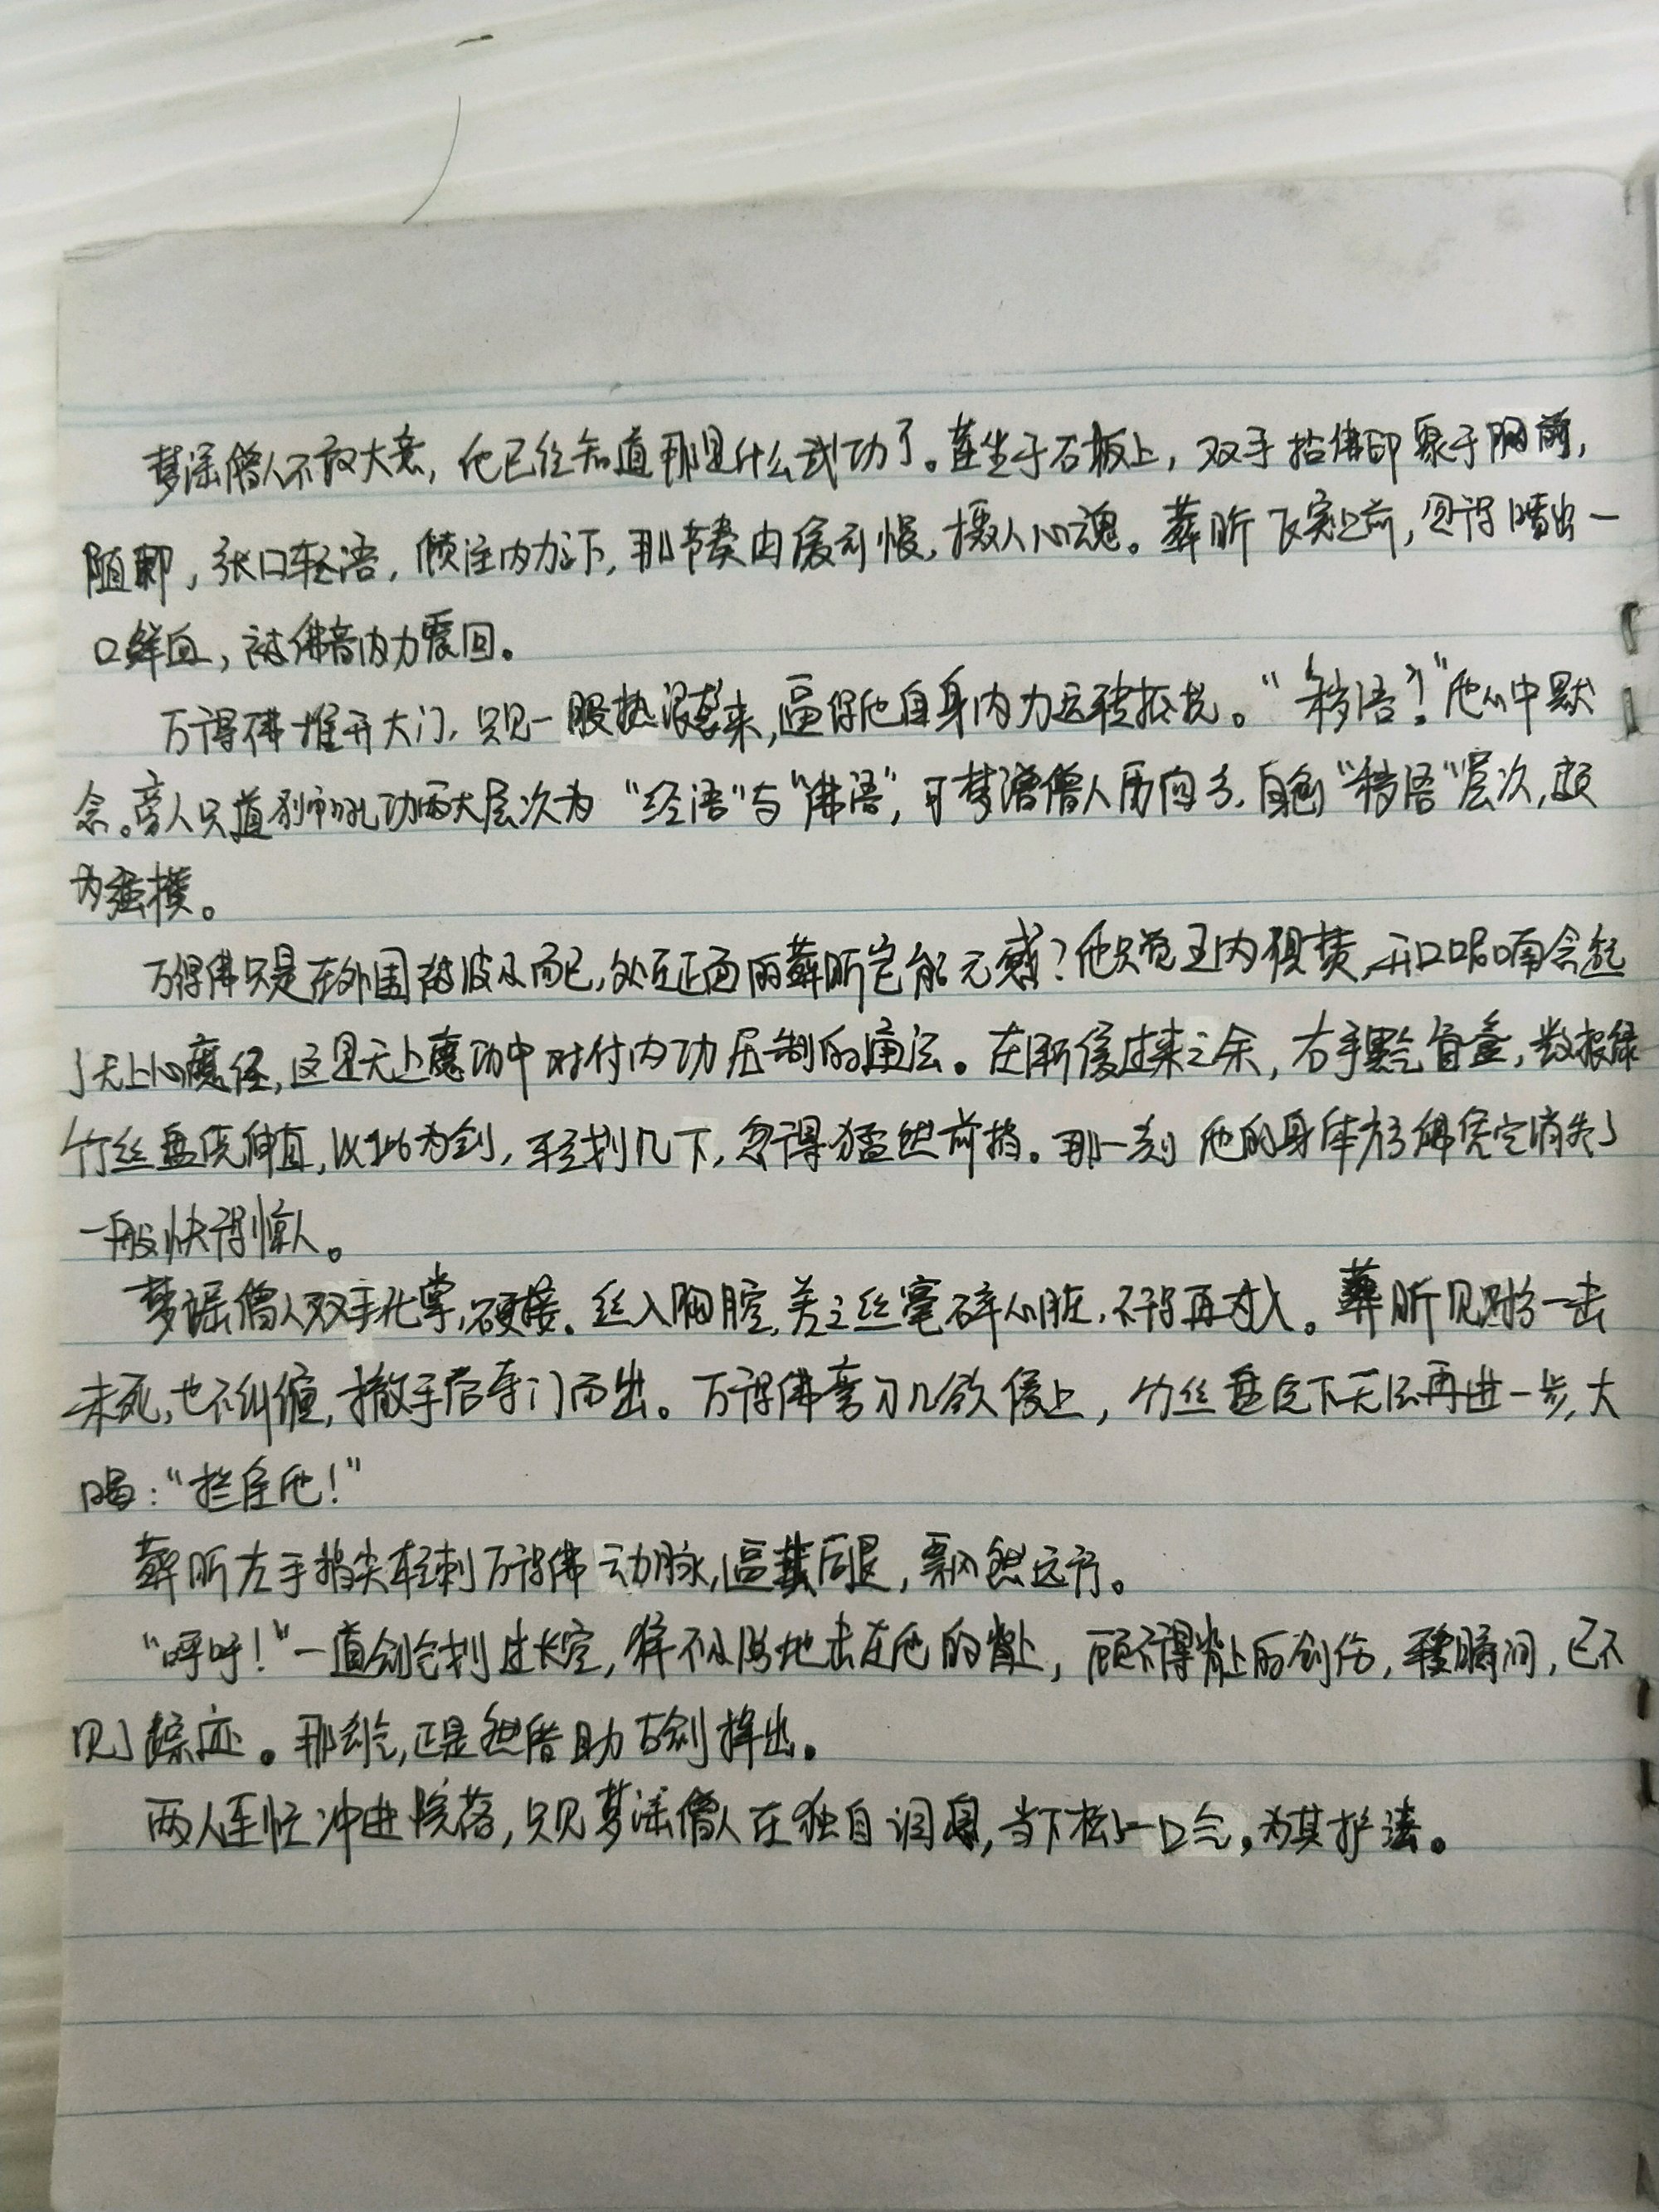 梦谣僧人不敢大意，他已经知道那是什么武功了。莲坐于石板上，双手掐佛印聚于胸前，
随即，张口轻语，倾注内力之下，那节奏由缓到慢，摄人心魂。葬昕飞突之前，忽得喷出一
口鲜血，被佛音内力震回。
万得佛推开大门，只见一股热浪袭来，逼得他自身内力运转抵抗。“ 移语？”他心中默
念。旁人只道狮吼功两大层次为“经语”与“佛语”，可梦谣僧人历 自创“移语”层次，颇
为强横。
万得佛只是在外围被波及而已，处在正面的葬昕岂能无感？他只觉五内俱焚，开口呢喃念起
了无上心魔经，这是无上魔功中对付内功压制的魔法。在昕缓过来之余，右手 ，数根绿
竹丝盘绕伸直，以丝为剑，轻划几下，忽得猛然前挡。那一刻 他的身体彷佛凭空消失了
一般快得惊人。
梦谣僧人双手化掌，硬接。丝入胸腔，差之丝毫碎心脏，不得再刺入。葬昕见对方一击
未死，也不纠缠，撤手后夺门而出。万得佛弯刀几欲侵上，竹丝盘绕下无法再进一步，大
喝：“拦住他！”
葬昕左手指尖轻刺万得佛动脉，逼其后退，飘然远行。
“呼呼！”一道剑气划过长空，猝不及防地击在他的背上，顾不得背上的创伤，转瞬间，已不
见了踪迹。那剑气，正是 借助古剑挥出。
两人连忙冲进院落，只见梦谣僧人在独自调息，当下松了一口气，为其护法。